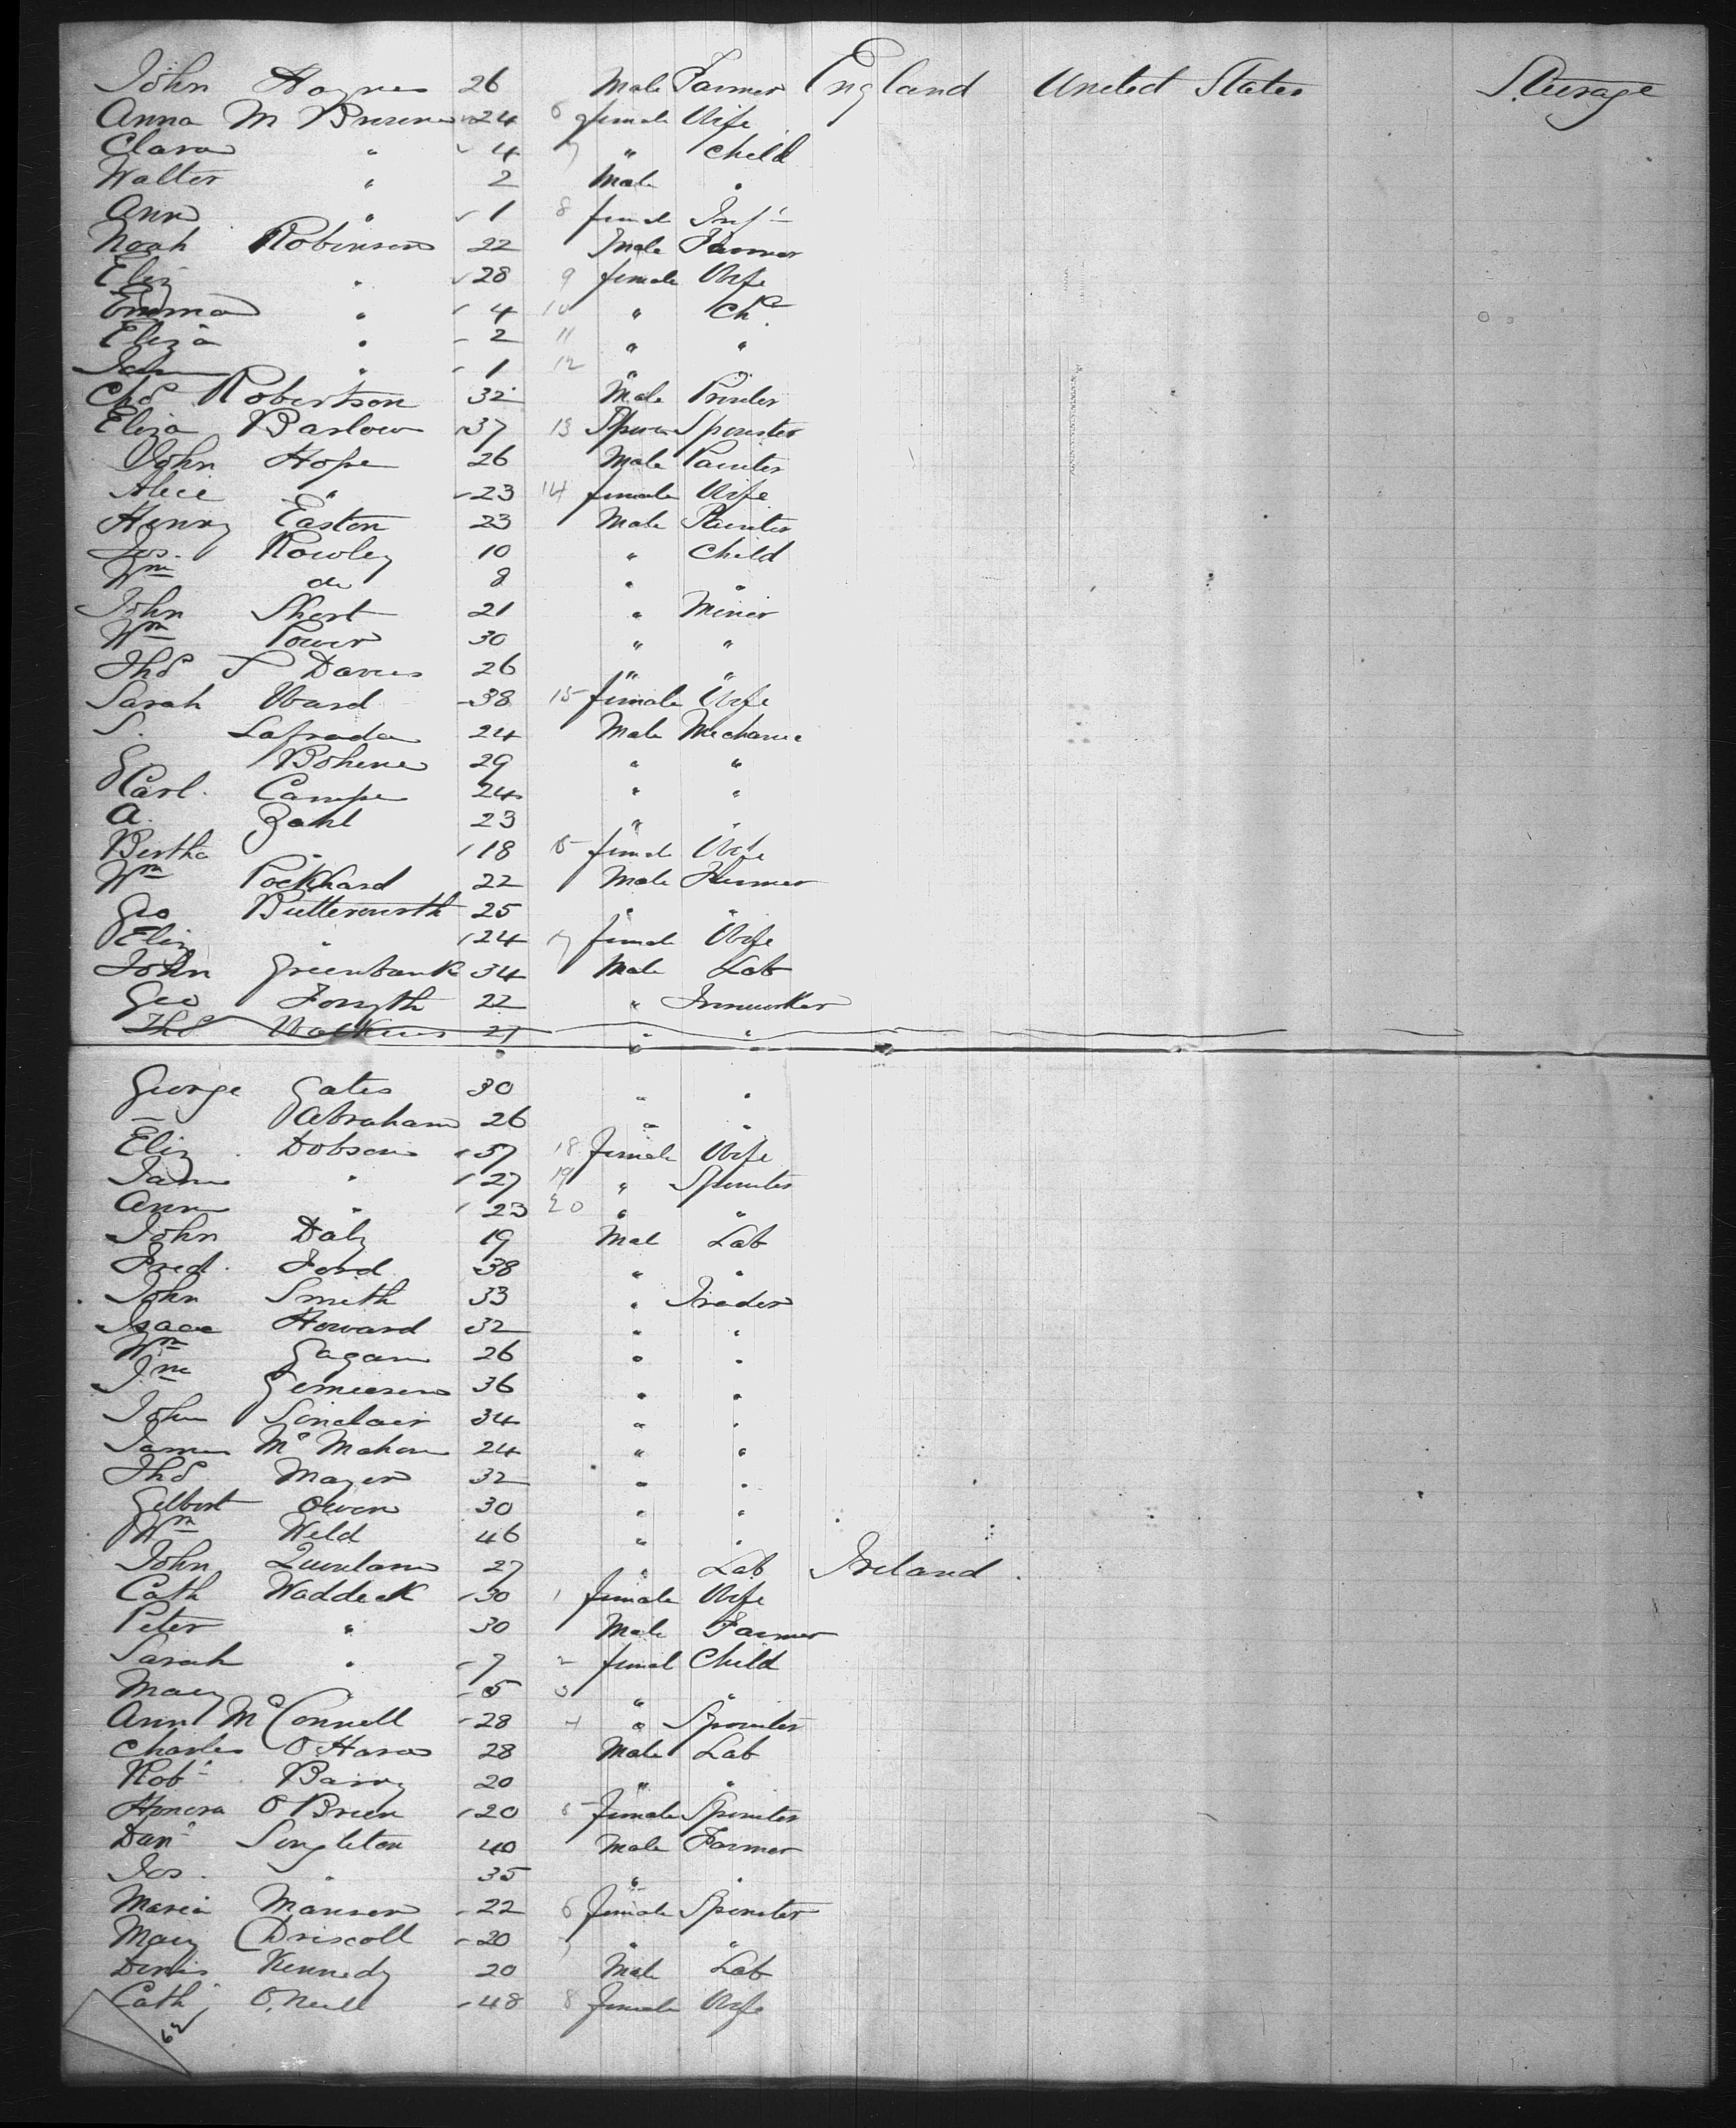 John Haynes 26 Male Farmer England United States Steerage
Anna M Browne 24 6 female Wife
Clara " 4 7 " Child
Walter " 2 Male "
Ann " 1 8 female Inft
Noah Robinson 22 Male Farmer
Eliz " 28 9 female Wife
Emma " 4 10 " Chd
Eliza " 2 11 " "
" 1 12 " "
Chs Robertson 32 Male Printer
Eliza Barlow 37 13 Spinster
John Hope 26 Male Painter
Alice " 23 14 female Wife
Henry Easton 23 Male Painter
Jos. Rowley 10 " Child
Wm do 8 " "
John Short 21 " Miner
Wm Power 30 " "
Thos S Davies 26 " "
Sarah Ward 38 15 female Wife
S. Lafrada 24 Male Mechanic
G Bohene 29 " "
Carl. Campe 24 " "
A. Zahl 23 " "
Bertha " 18 female Wife
Wm Pockhard 22 Male Farmer
Geo Butterworth 25 " "
Eliz " 24 17 female Wife
John Greenbank 34 Male Lab
Geo Forsyth 22 " Ironworker
Thos Watkins 27 " "
George Gates 30 " "
— Gabraham 26 " "
Eliz Dobson 57 18 female Wife
Jane " 27 19 " Spinster
Ann " 23 20 " "
John Daly 19 Male Lab
Fred. Ford 38 " "
John Smith 33 " Trader
Isaac Howard 32 " "
Wm Gagan 26 " "
Jno Jemieson 36 " "
John Sinclair 34 " "
James McMahon 24 " "
Thos Mayer 32 " "
Gilbert Owen 30 " "
Wm Weld 46 " "
John Quinlan 27 " Lab Ireland
Cath Waddeck 30 1 female Wife
Peter " 30 Male Farmer
Sarah " 7 2 femal Child
Mary " 5 3 " "
Ann McConnell 28 4 " Spinster
Charles O'Hara 28 Male Lab
Robt Barry 20 " "
Honora O'Brien 20 5 female Spinster
Danl Singleton 40 Male Farmer
Jos. " 35 " "
Maria Manson 22 6 female Spinster
Mary Driscoll 20 7 " "
Denis Kennedy 20 Male Lab
Cath O'Neill 48 8 female Wife
62